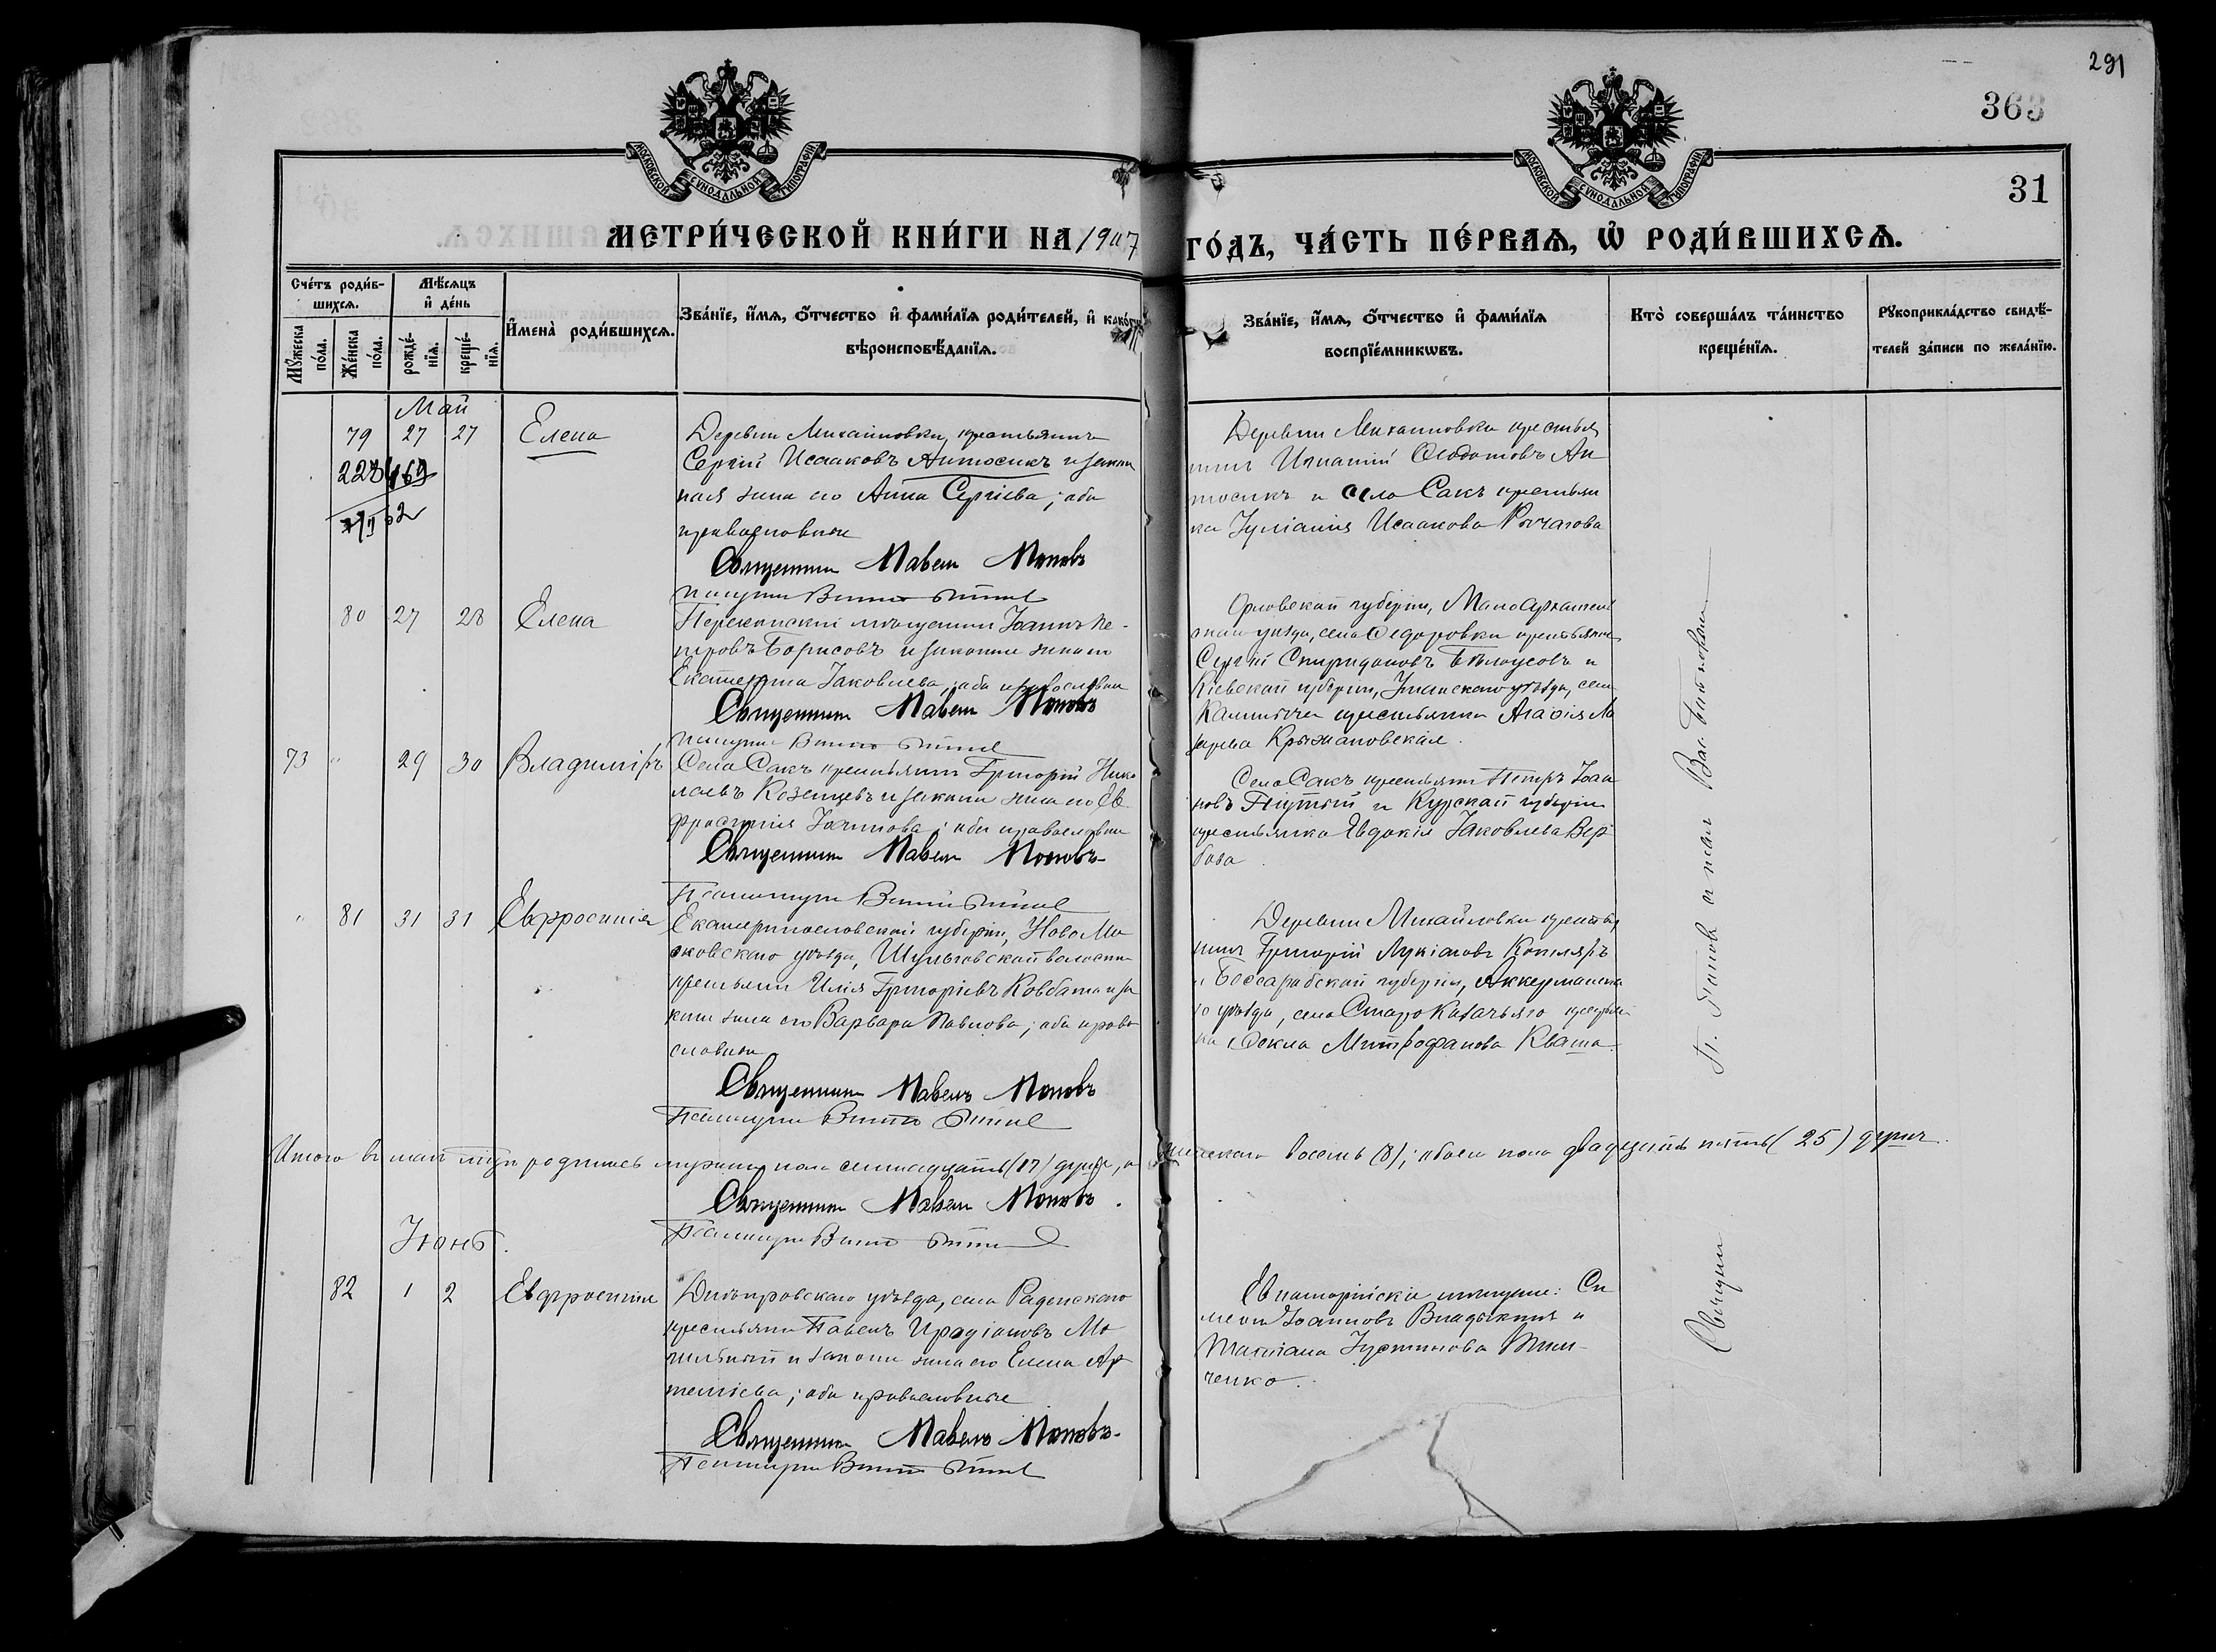 291
363
31
МОСКОВСКОЙ СѴНОДАЛЬНОЙ ТИПОГРАФІИ
МОСКОВСКОЙ СѴНОДАЛЬНОЙ ТИПОГРАФІИ
МЕТРИ́ЧЕСКОЙ КНИ́ГИ НА 1907 ГО́ДЪ, ЧА́СТЬ ПЕ́РВАѦ, Ѡ҆ РОДИ́ВШИХСѦ.
Сче́тъ роди́в-
шихсѧ.
Мꙋ́жеска по́ла.
Же́нска по́ла.
Мѣ́сѧцъ
и҆ де́нь
рожде́-
нїѧ.
креще́-
нїѧ.
И҆мена̀ роди́вшихсѧ.
Зва́нїе, и҆́мѧ, ѻ҆́тчество и҆ фами́лїѧ роди́телей, и҆ како́гѡ
вѣроисповѣ́данїѧ.
Зва́нїе, и҆́мѧ, ѻ҆́тчество и҆ фами́лїѧ
воспрїе́мникѡвъ.
Кто̀ соверша́лъ та́инство
креще́нїѧ.
Рꙋкоприкла́дство свидѣ́-
телей за́писи по жела́нїю.
Май
79 27 27 Елена
Деревни Михайловки, крестьянинъ
Сергій Исааковъ Антосикъ и закон
ная жена его Анна Сергіева; оба
православные
Священникъ Павелъ Поповъ
Деревни Михайловки крестья
нинъ Игнатій Ѳеодотовъ Ан
тосикъ и села Сакъ крестьян
ка Іуліанія Исаакова Рычагова
80 27 28 Елена
Перекопскій мѣщанинъ Іоаннъ Пе-
тровъ Борисовъ и законная жена его
Екатерина Іаковлева, оба православные
Священникъ Павелъ Поповъ
Орловской губерніи, Малоархангель
скаго уѣзда, села Ѳедоровки крестьянинъ
Сергій Спиридоновъ Бѣлоусовъ и
Кіевской губерніи, Уманскаго уѣзда, села
крестьянка Агаѳія Ла
зарева Крыжановская.
73 " 29 30 Владиміръ
Села Сакъ крестьянинъ Григорій Нико
лаевъ Козенцевъ и законная жена его Ев
фросинія; оба православные
Священникъ Павелъ Поповъ
Села Сакъ крестьянинъ Петръ Іоан
новъ и Курской губерніи
крестьянка Евдокія Іаковлева Вер
баса.
" 81 31 31 Евфросинія
Екатеринославской губерніи, Ново Мо
сковскаго уѣзда, Шульговской волости
крестьянинъ Илія Григоріевъ Ковбаса и за
конная жена его Варвара Павлова; оба право
славные
Священникъ Павелъ Поповъ
Деревни Михайловки крестья
нинъ Григорій Лукіановъ Котляръ
и Бессарабской губерніи, Аккерманска
го уѣзда, села Старо Казачьяго крестьян
ка Ѳекла Митрофанова Кваша.
Итого въ маѣ м-цѣ родилось мужеска пола семнадцать (17) душъ, а женскаго восемь (8); обоего пола двадцать пять (25) душъ.
Священникъ Павелъ Поповъ.
Іюнь.
82 1 2 Евфросинія
Днѣпровскаго уѣзда, села Раденскаго
крестьянинъ Павелъ Иродіоновъ Мо
гильный и законная жена его Елена Ар
теміева; оба православные
Священникъ Павелъ Поповъ.
Евпаторійскіе мѣщане: Си
меонъ Іоанновъ Владыкинъ и
Татіана Іустинова Тим-
ченко.
Священникъ П. Поповъ съ псал. Вас.